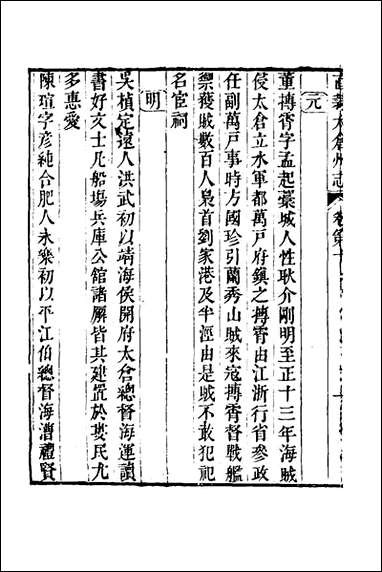 太倉州志 卷第十
元
董摶霄字孟起藁城人性耿介剛明至正十三年海賊
侵太倉立水軍都萬戸府鎮之摶霄由江浙行省參政
任副萬戸事時方國珍引蘭秀山賊來寇摶霄督戰艦
禦獲賊數百人梟首劉家港及半涇由是賊不敢犯祀
名宦祠
明
吳楨定遠人洪武初以靖海侯開府太倉總督海運讀
書好文士凡船場兵庫公館諸廨皆其建置於婁民尤
多惠愛
陳瑄字彦純合肥人永樂初以平江伯總督海漕禮賢